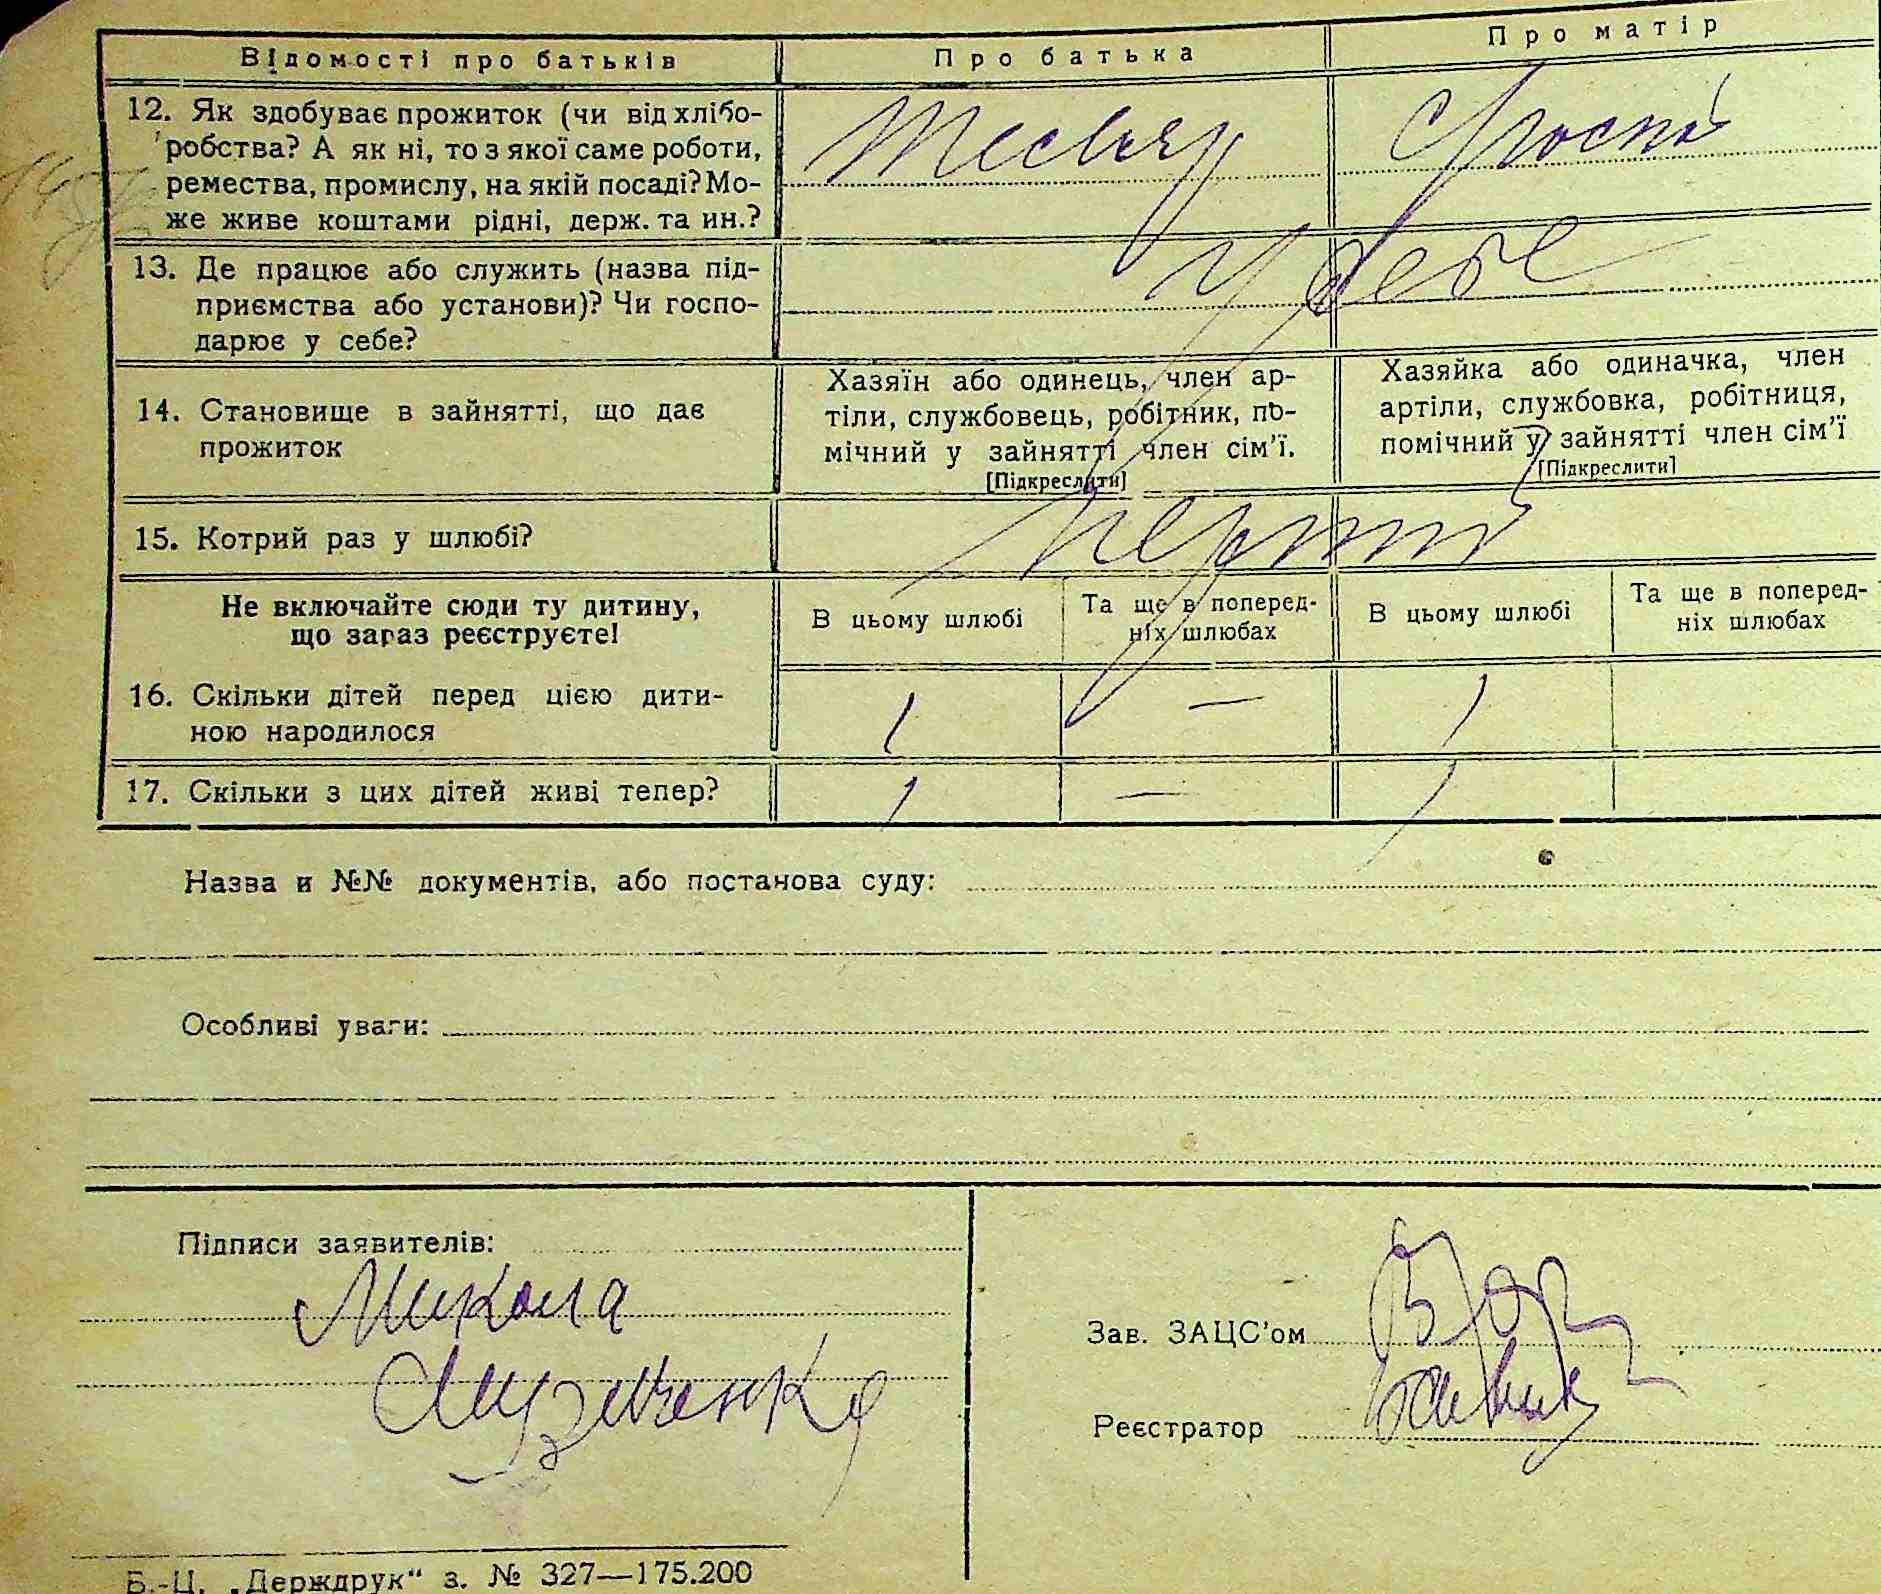 Відомості про батьків
Про батька
Про матір
12. Як здобуває прожиток (чи від хлібо-
робства? А як ні, то з якої саме роботи,
ремества, промислу, на якій посаді? Мо-
же живе коштами рідні, держ. та ин.?
Тесляр
13. Де працює або служить (назва під-
приємства або установи)? Чи госпо-
дарює у себе?
У себе
14. Становище в зайнятті, що дає
прожиток
Хазяїн або одинець, член ар-
тіли, службовець, робітник, по-
мічний у зайнятті член сім'ї.
[Підкреслити]
Хазяйка або одиначка, член
артіли, службовка, робітниця,
помічний у зайнятті член сім'ї
[Підкреслити]
15. Котрий раз у шлюбі?
перший
Не включайте сюди ту дитину,
що зараз реєструєте!
В цьому шлюбі
Та ще в поперед-
ніх шлюбах
В цьому шлюбі
Та ще в поперед-
ніх шлюбах
16. Скільки дітей перед цією дити-
ною народилося
1 — 1
17. Скільки з цих дітей живі тепер?
1 — 1
Назва и №№ документів, або постанова суду:
Особливі уваги:
Підписи заявителів:
Микола
Зав. ЗАЦС'ом
Реєстратор
Б.-Ц. „Держдрук“ з. № 327—175.200